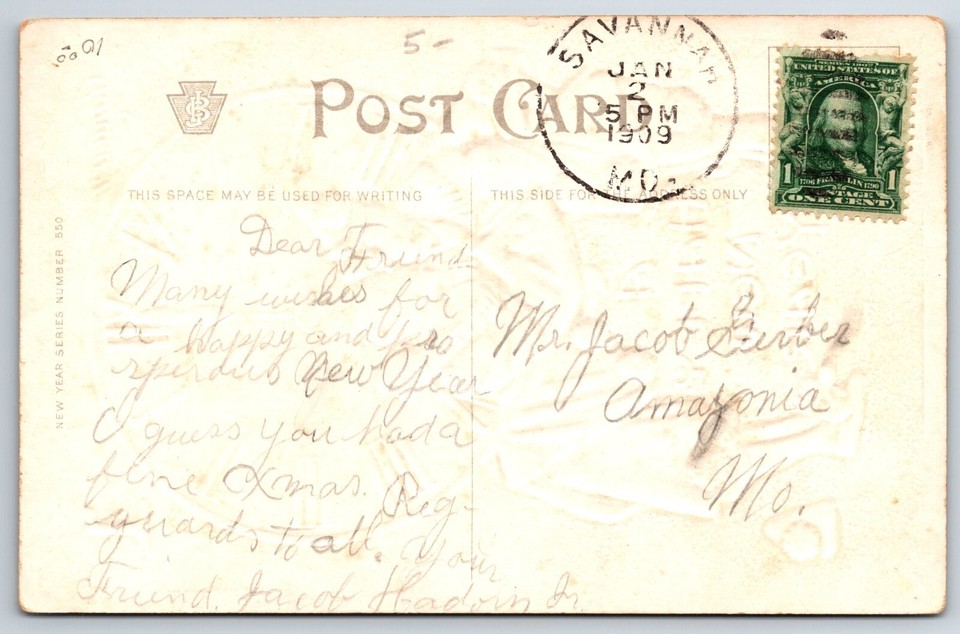 5-
POST CARD
SAVANNAH
JAN
2
5 PM
1909
MO.
SERIES 1902
UNITED STATES OF
AMERICA
1706 FRANKLIN 1790
1 1
POSTAGE
ONE CENT
THIS SPACE MAY BE USED FOR WRITING
THIS SIDE FOR THE ADDRESS ONLY
NEW YEAR SERIES NUMBER 550
Dear Friend
Many wishes for
a happy and pro
sperous New Year
I guess you had a
fine Xmas. Reg-
guards to all. Your
Friend. Jacob Hadorn Jr.
Mr. Jacob Gerber
Amazonia
Mo.